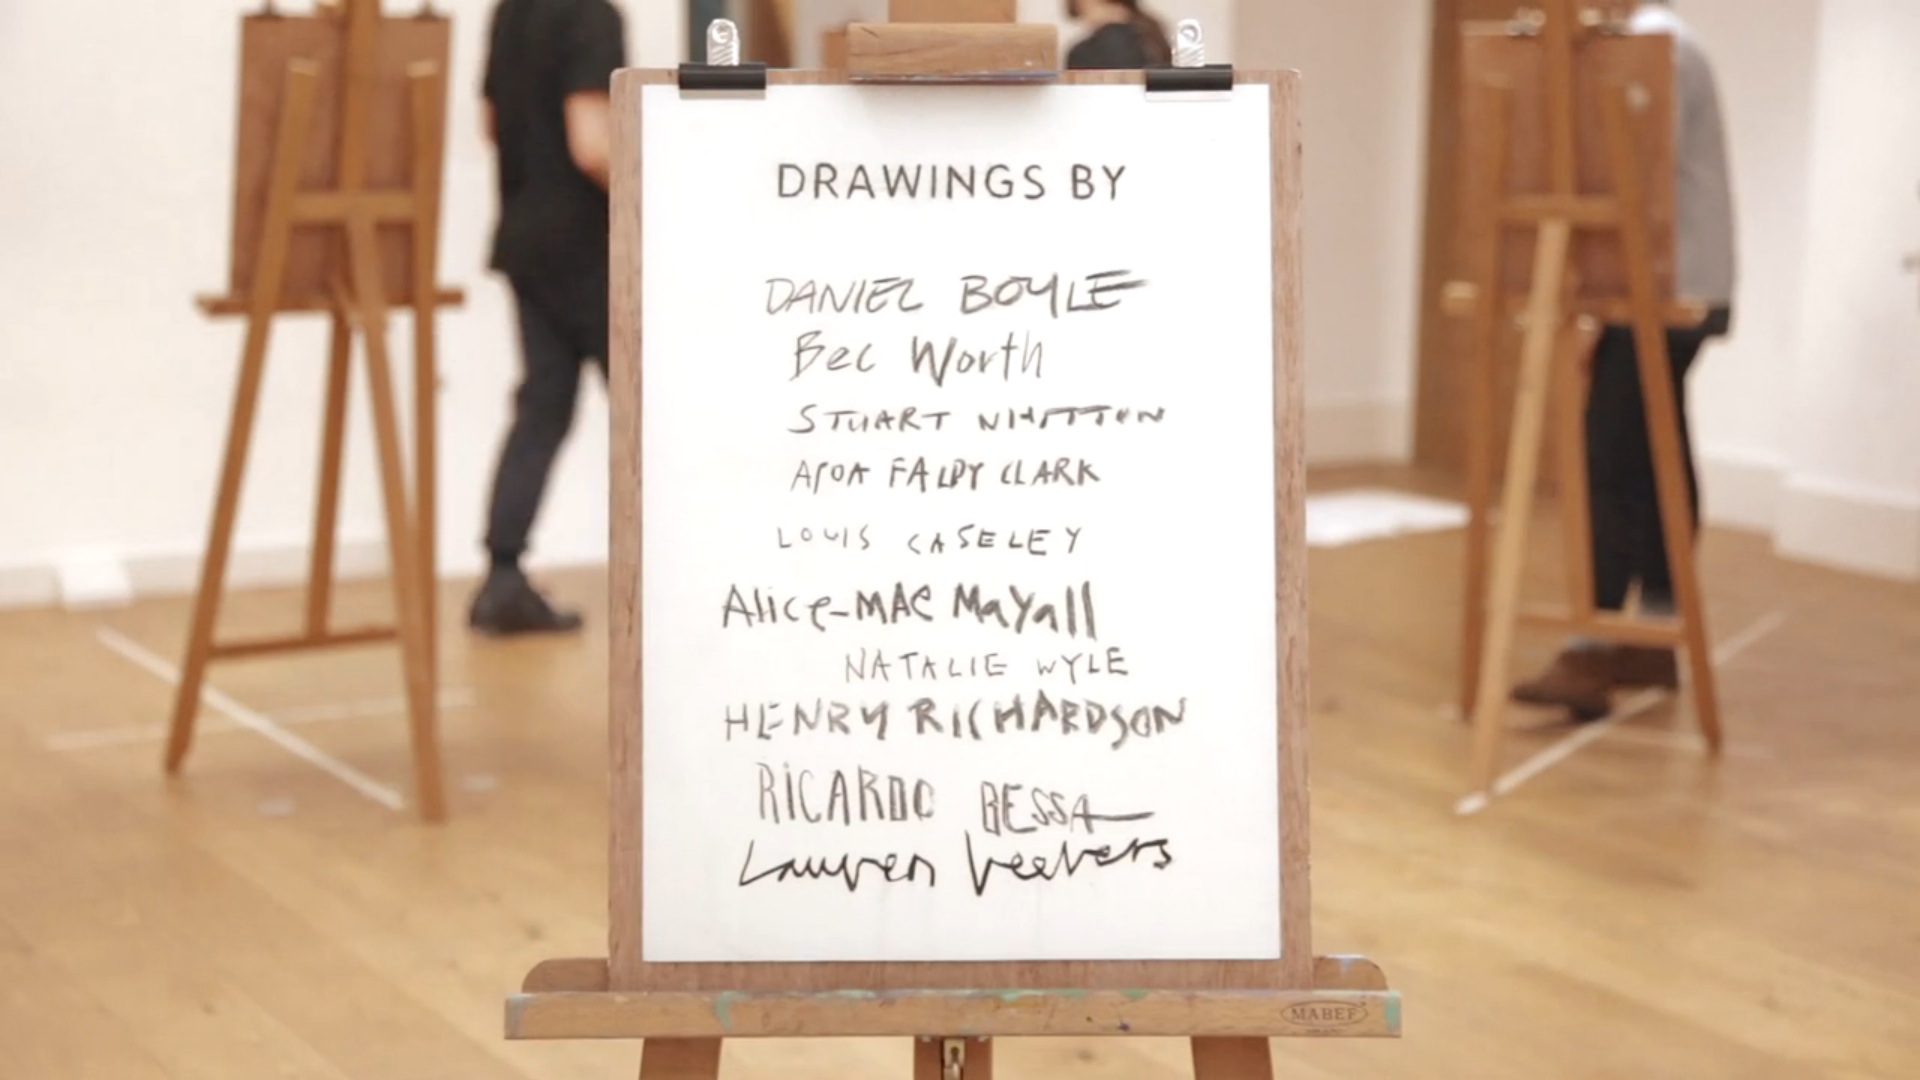 DRAWINGS BY
DANIEL BOYLE
Bec Worth
STUART
CLARK
LOUIS CASELEY
Alice-MAE Mayall
NATALIE WYLE
HENRY RICHARDSON
RICARDO BESSA
Lauren Veevers
MABEF